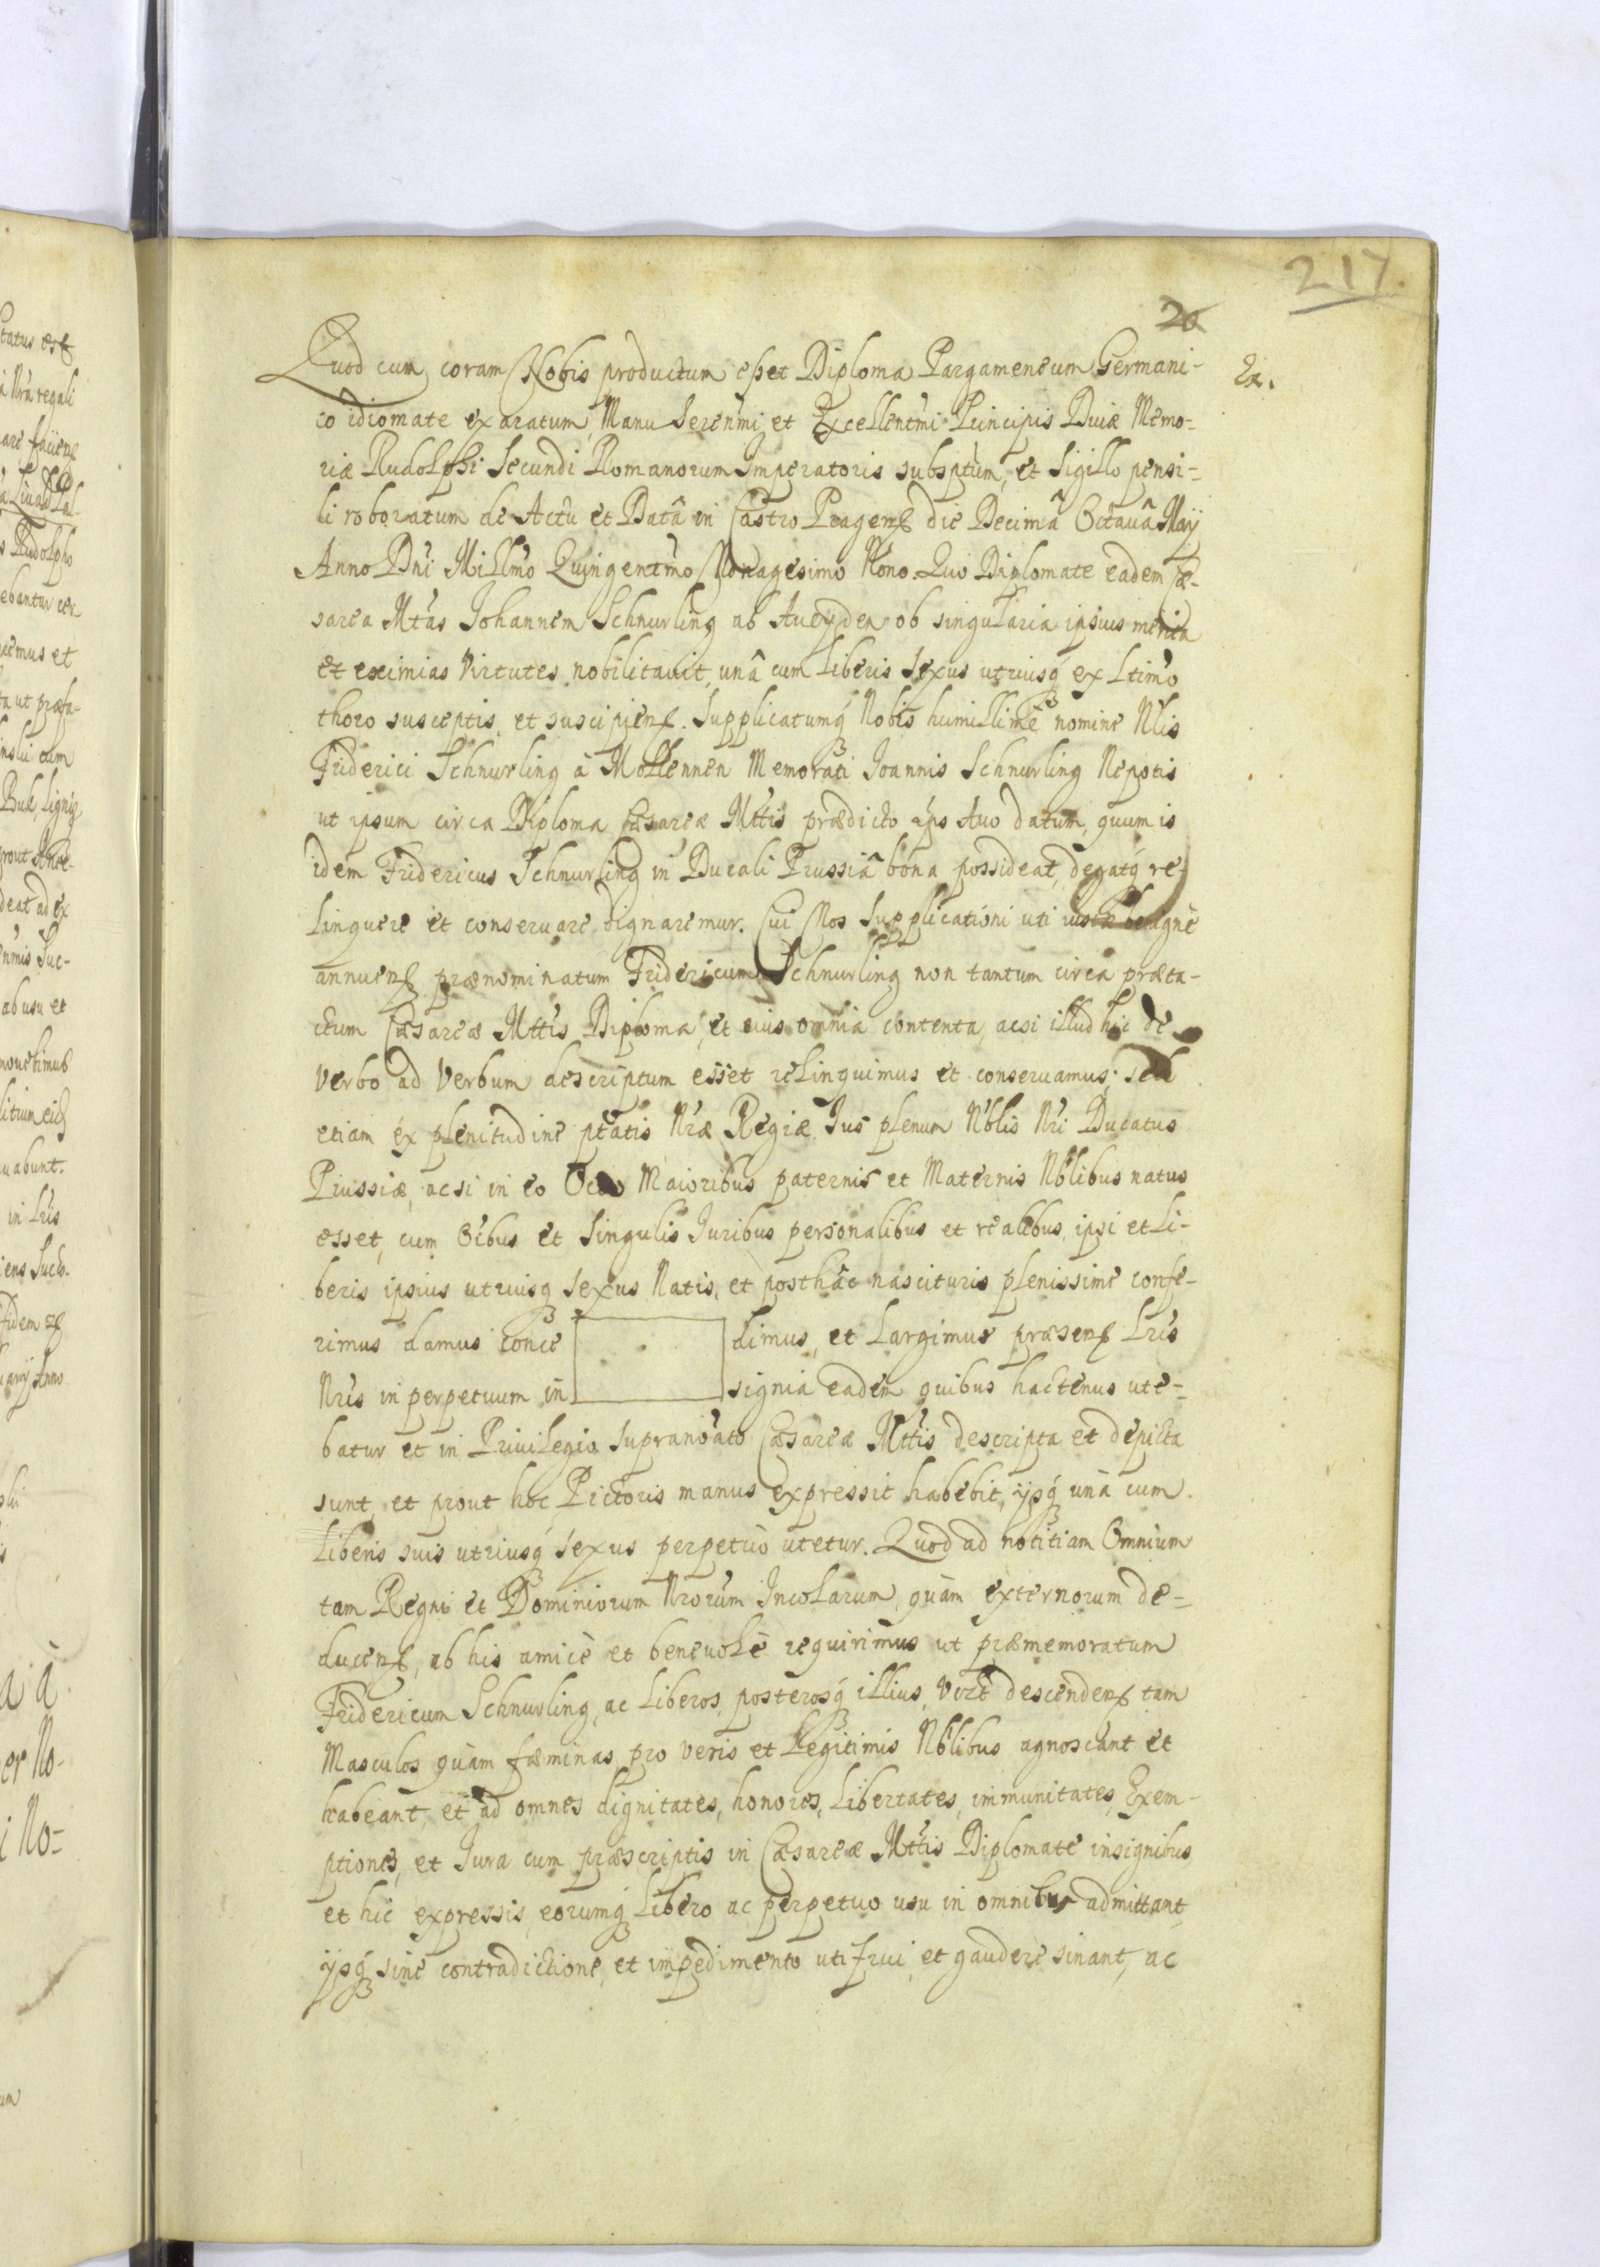 217.
20
Quod cum coram Nobis productum esset Diploma Pargameneum Germani- Ex.
co idiomate exaratum, Manu Serenmi et Excellentmi Principis Divæ Memo-
riæ Rudolphi Secundi Romanorum Imperatoris subsptum, et Sigillo pensi-
li roboratum de Actu et Datâ in Castro Pragens die Decimâ Octauâ May
Anno Dni Millmo Quingentmo Nonagesimo Nono Quo Diplomate eadem Cæ-
sarea Mtas Johannem Schnurling ab Aueyden ob singularia ipsius merita
et eximias Virtutes nobilitauit, unâ cum Liberis Sexus utriusq ex Ltimo
thoro susceptis, et suscipiens. Supplicatumq Nobis humillimè nomine Nlis
Friderici Schnurling à Mollennen Memorati Joannis Schnurling Nepotis
ut ipsum circa Diploma Cæsareæ Mttis prædicto ips Auo datum, quum is
idem Fridericus Schnurling in Ducali Prussiâ bona possideat, degatq re-
linquere et conservare dignaremur. Cui Nos Supplicationi uti iustæ benignè
annuens prænominatum Fridericum Schnurling non tantum circa præta-
ctum Cæsareæ Mttis Diploma, et eius omnia contenta, acsi illud hic de
Verbo ad Verbum descriptum esset relinquimus et conseruamus; sed
etiam ex plenitudine ptatis Nræ Regiæ Jus plenum Nblis Nri Ducatus
Prussiæ, acsi in eo Octo Maioribus paternis et Maternis Nblibus natus
esset, cum Oibus et Singulis Juribus personalibus et realibus, ipsi et Li-
beris ipsius utriusq Sexus Natis, et posthâc nascituris plenissime confe-
rimus damus conce dimus, et Largimur præsens Lris
Nris in perpetuum in signia eadem quibus hactenus ute-
batur et in Privilegio supranoato Cæsareæ Mttis descripta et depicta
sunt, et prout hoc Pictoris manus expressit habebit, ijsq unà cum
Liberis suis utriusq Sexus perpetuò utetur. Quod ad notitiam Omnium
tam Regni et Dominiorum Nrorum Incolarum, quàm externorum de-
ducens, ab his amicè et beneuolè requirimus ut præmemoratum
Fridericum Schnurling, ac Liberos, posterosq illius, Vtrt descendens tam
Masculos quàm fæminas, pro veris et Legitimis Nblibus agnoscant et
habeant, et ad omnes dignitates, honores, Libertates, immunitates, Exem-
ptiones, et Jura cum præscriptis in Cæsareæ Mttis Diplomate insignibus
et hic expressis, eorumq Libero ac perpetuo usu in omnibus admittant,
ijsq sine contradictione, et impedimento uti frui, et gaudere sinant, ac